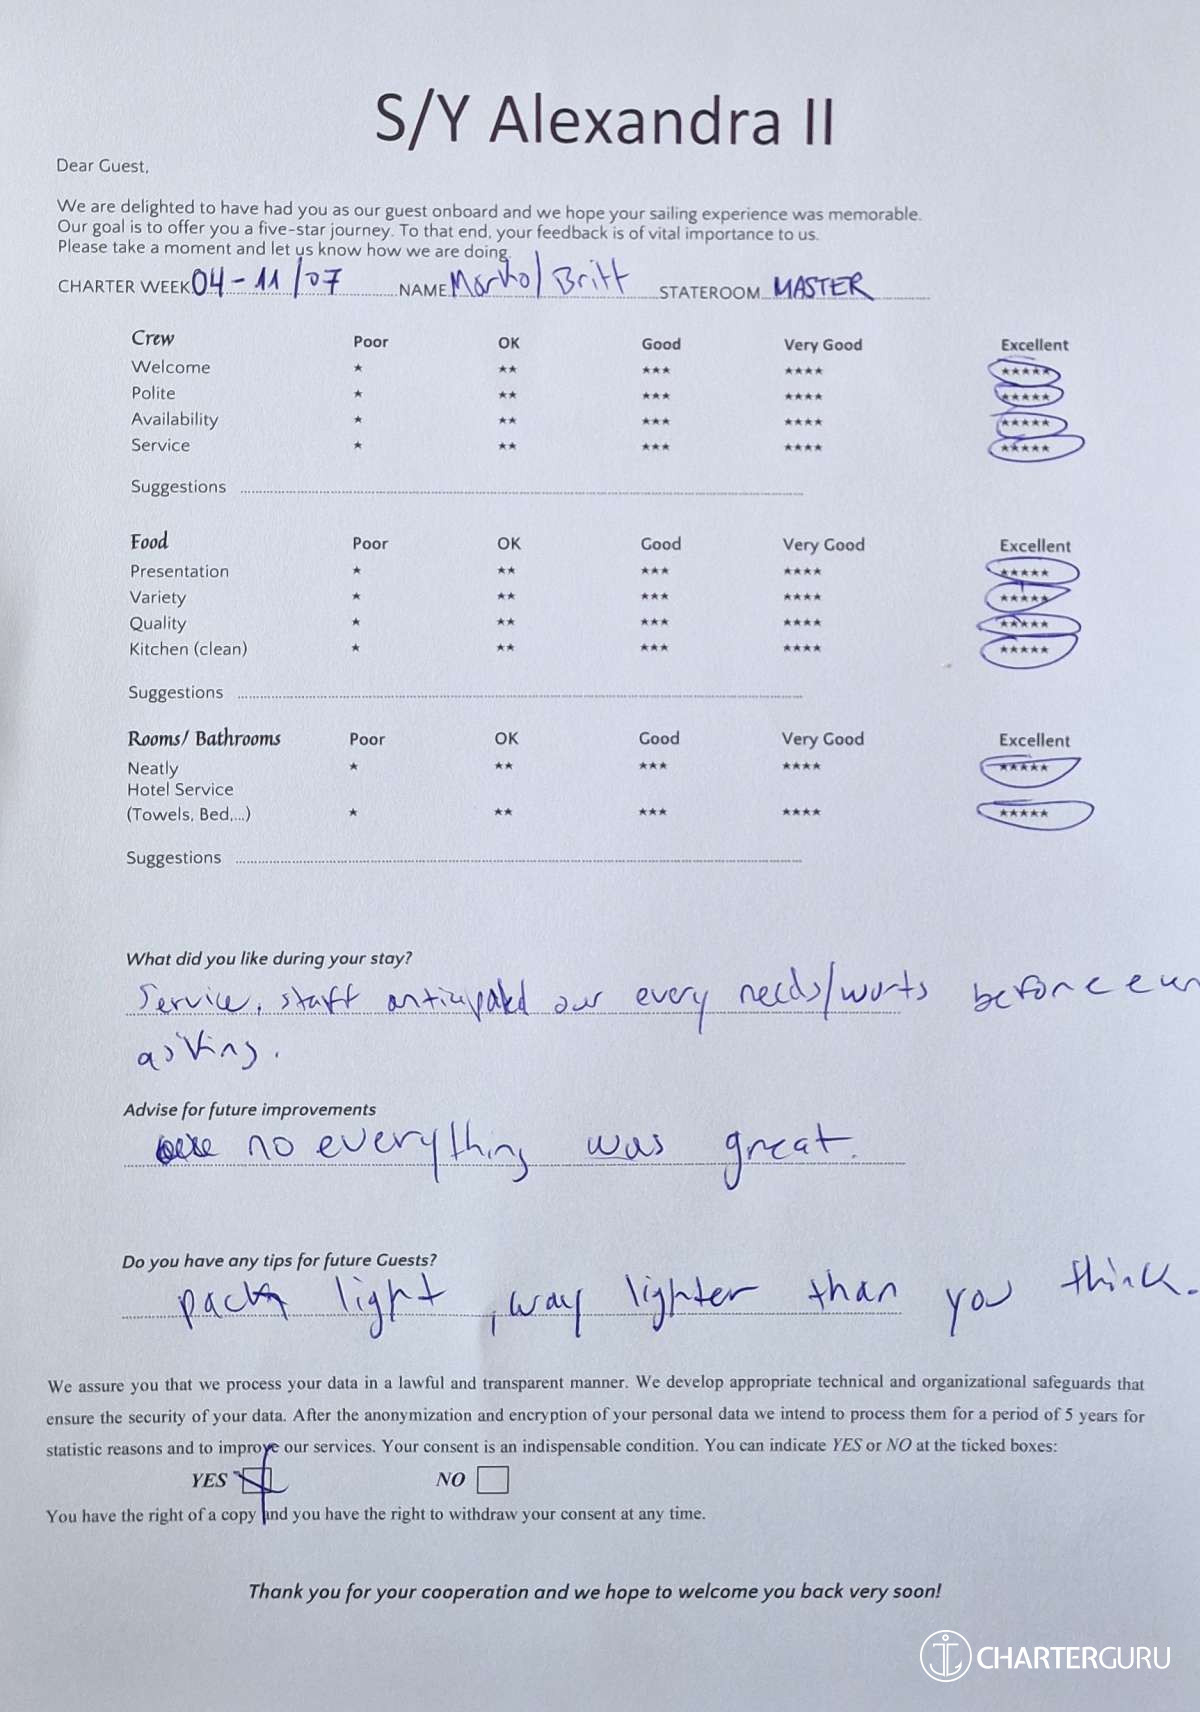 S/Y Alexandra II
Dear Guest,
We are delighted to have had you as our guest onboard and we hope your sailing experience was memorable.
Our goal is to offer you a five-star journey. To that end, your feedback is of vital importance to us.
Please take a moment and let us know how we are doing.
CHARTER WEEK 04-11/07 NAME / Britt STATEROOM MASTER
Crew Poor OK Good Very Good Excellent
Welcome ★ ★★ ★★★ ★★★★ ★★★★★
Polite ★ ★★ ★★★ ★★★★ ★★★★★
Availability ★ ★★ ★★★ ★★★★ ★★★★★
Service ★ ★★ ★★★ ★★★★ ★★★★★
Suggestions
Food Poor OK Good Very Good Excellent
Presentation ★ ★★ ★★★ ★★★★ ★★★★★
Variety ★ ★★ ★★★ ★★★★ ★★★★★
Quality ★ ★★ ★★★ ★★★★ ★★★★★
Kitchen (clean) ★ ★★ ★★★ ★★★★ ★★★★★
Suggestions
Rooms/ Bathrooms Poor OK Good Very Good Excellent
Neatly ★ ★★ ★★★ ★★★★ ★★★★★
Hotel Service
(Towels, Bed,...) ★ ★★ ★★★ ★★★★ ★★★★★
Suggestions
What did you like during your stay?
Service, staff anticipated our every needs/wants before
asking.
Advise for future improvements
no everything was great.
Do you have any tips for future Guests?
pack light, way lighter than you think.
We assure you that we process your data in a lawful and transparent manner. We develop appropriate technical and organizational safeguards that
ensure the security of your data. After the anonymization and encryption of your personal data we intend to process them for a period of 5 years for
statistic reasons and to improve our services. Your consent is an indispensable condition. You can indicate YES or NO at the ticked boxes:
YES NO
You have the right of a copy and you have the right to withdraw your consent at any time.
Thank you for your cooperation and we hope to welcome you back very soon!
CHARTERGURU